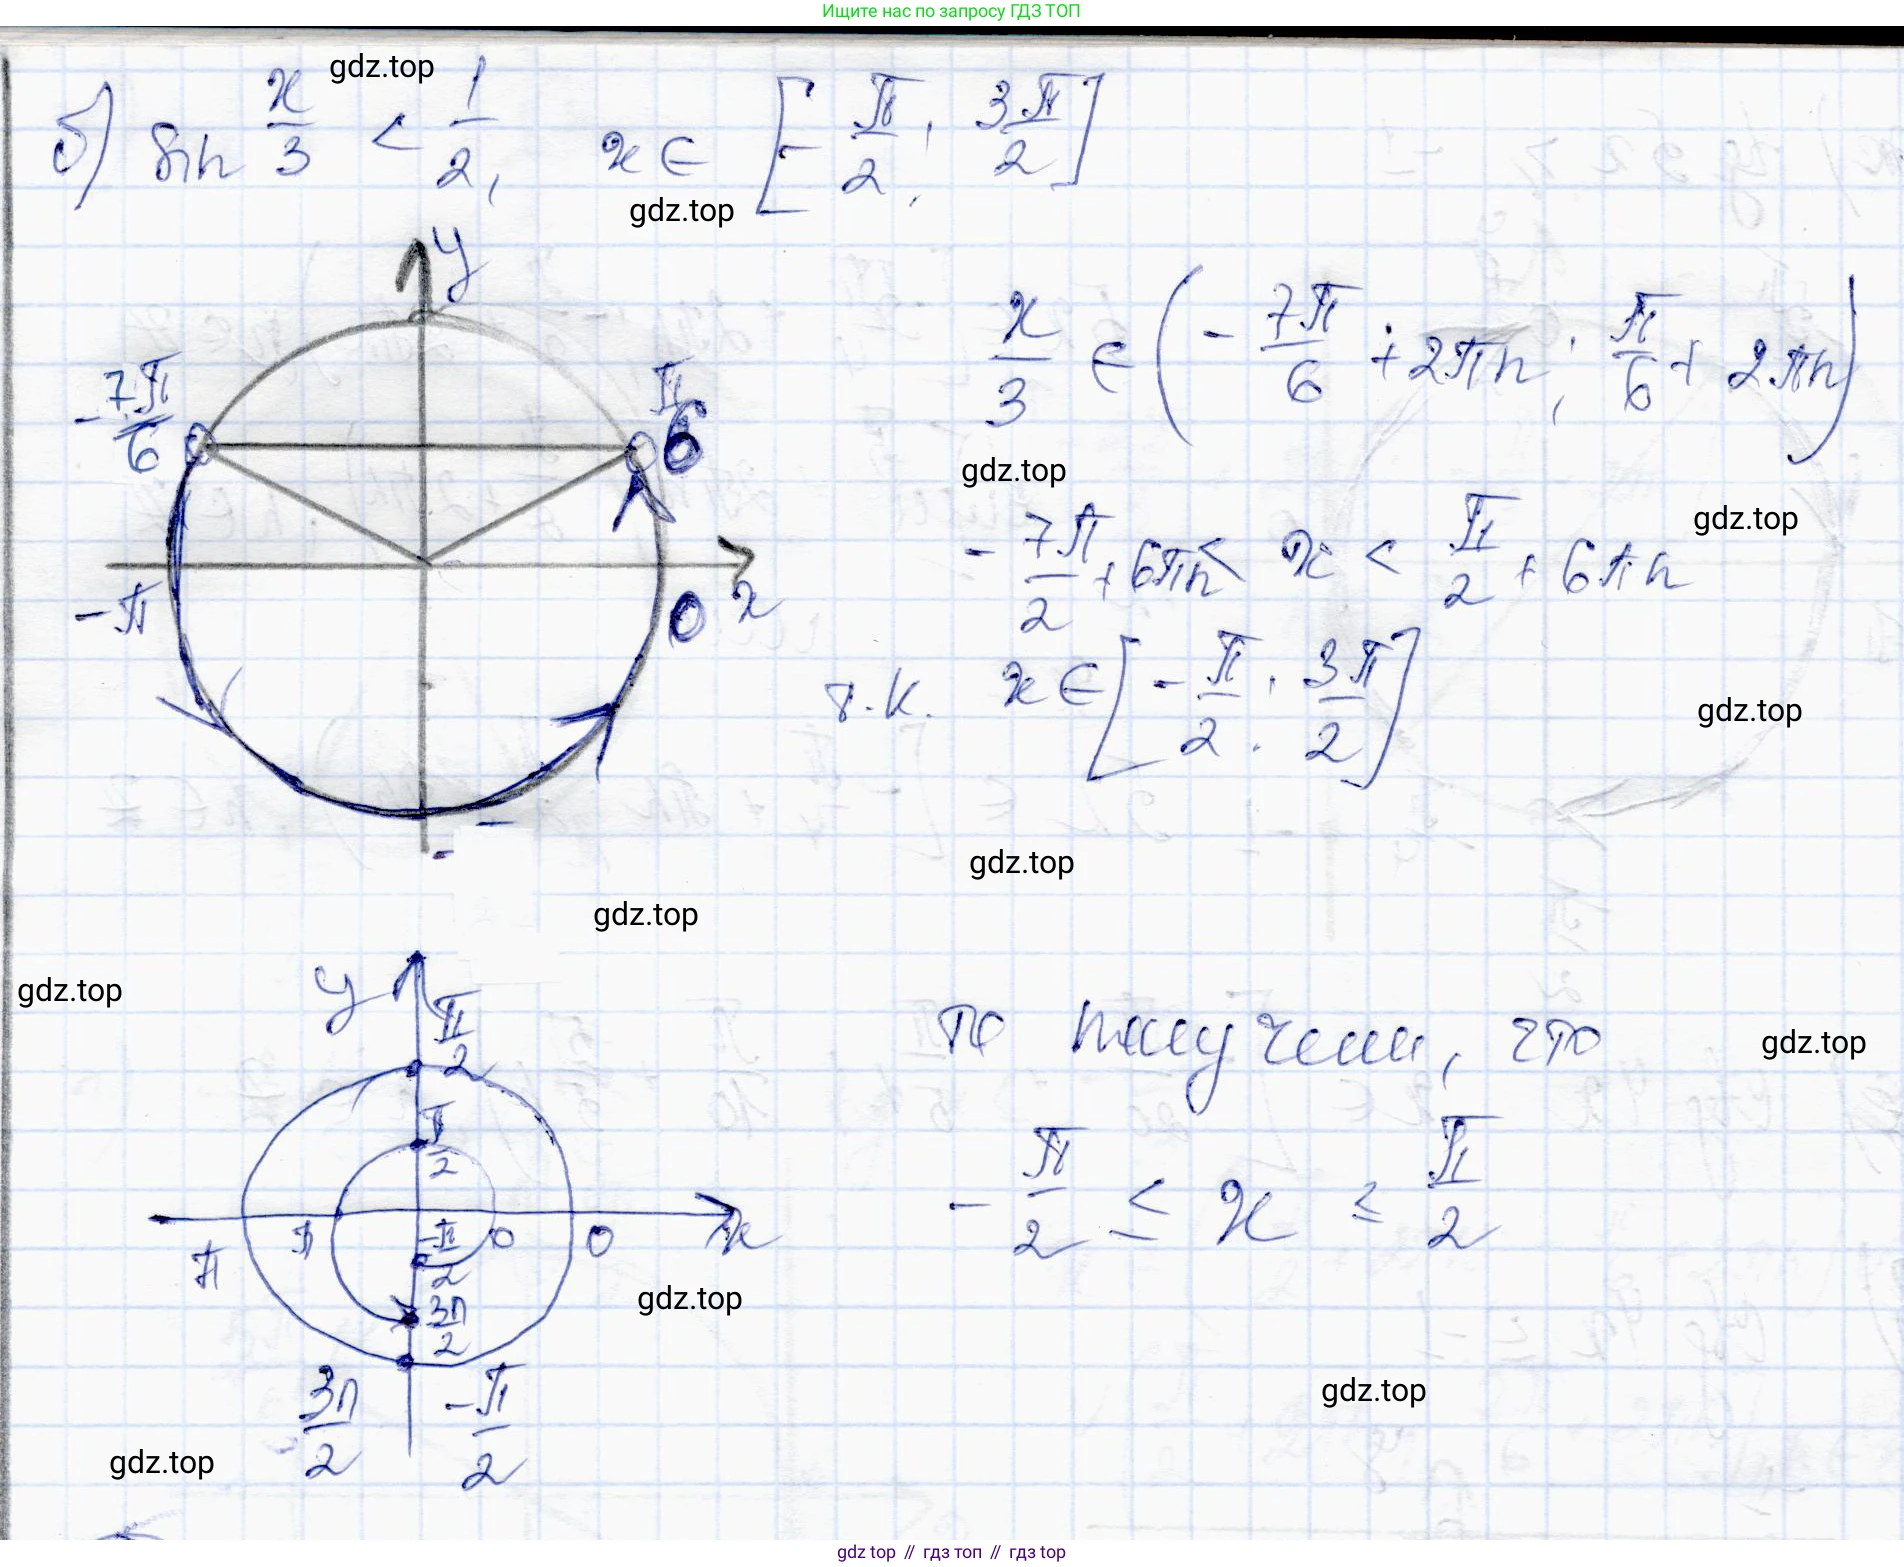 Ищите нас по запросу ГДЗ ТОП
gdz.top
б) sin x/3 < 1/2, x ∈ [-π/2; 3π/2]
gdz.top
y
-7π/6
π/6
x/3 ∈ (-7π/6 + 2πn; π/6 + 2πn)
gdz.top
gdz.top
-7π/2 + 6πn < x < π/2 + 6πn
-π
0 x
т.к. x ∈ [-π/2; 3π/2]
gdz.top
gdz.top
gdz.top
gdz.top
y
π/2
то получим, что
gdz.top
π/2
-π/2 ≤ x ≤ π/2
π π -π/2 0 0 x
3π/2
gdz.top
3π/2 -π/2
gdz.top
gdz.top
gdz top // гдз топ // гдз top